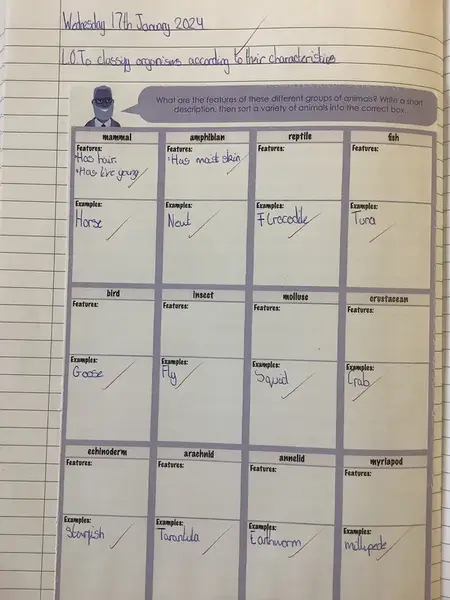 Wednesday 17th January 2024
L.O.To classify organisms according to their characteristics
What are the features of these different groups of animals? Write a short
description, then sort a variety of animals into the correct box.
mammal amphibian reptile fish
Features: Features: Features: Features:
•Has hair. •Has moist skin
•Has live young
Examples: Examples: Examples: Examples:
Horse Newt Crocodile Tuna
bird insect mollusc crustacean
Features: Features: Features: Features:
Examples: Examples: Examples: Examples:
Goose Fly Squid Crab
echinoderm arachnid annelid myriapod
Features: Features: Features: Features:
Examples: Examples: Examples: Examples:
Starfish Tarantula Earthworm millipede